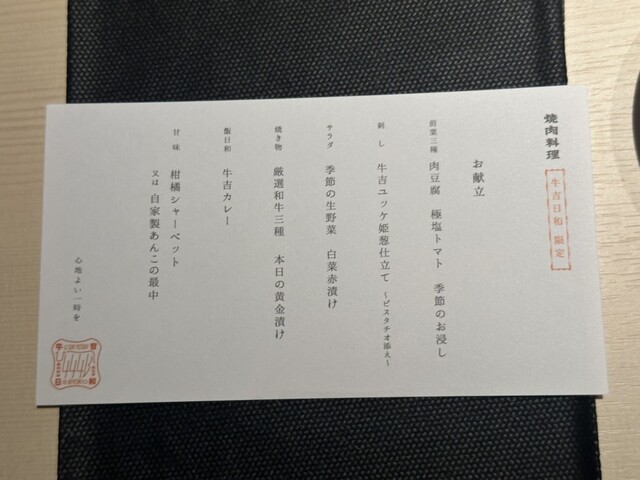 焼肉料理
牛吉日和 限定
お献立
前菜三種 肉豆腐 極塩トマト 季節のお浸し
刺し 牛吉ユッケ姫葱仕立て 〜ピスタチオ添え〜
サラダ 季節の生野菜 白菜赤漬け
焼き物 厳選和牛三種 本日の黄金漬け
飯日和 牛吉カレー
甘味 柑橘シャーベット
又は 自家製あんこの最中
心地よい一時を
牛吉日和